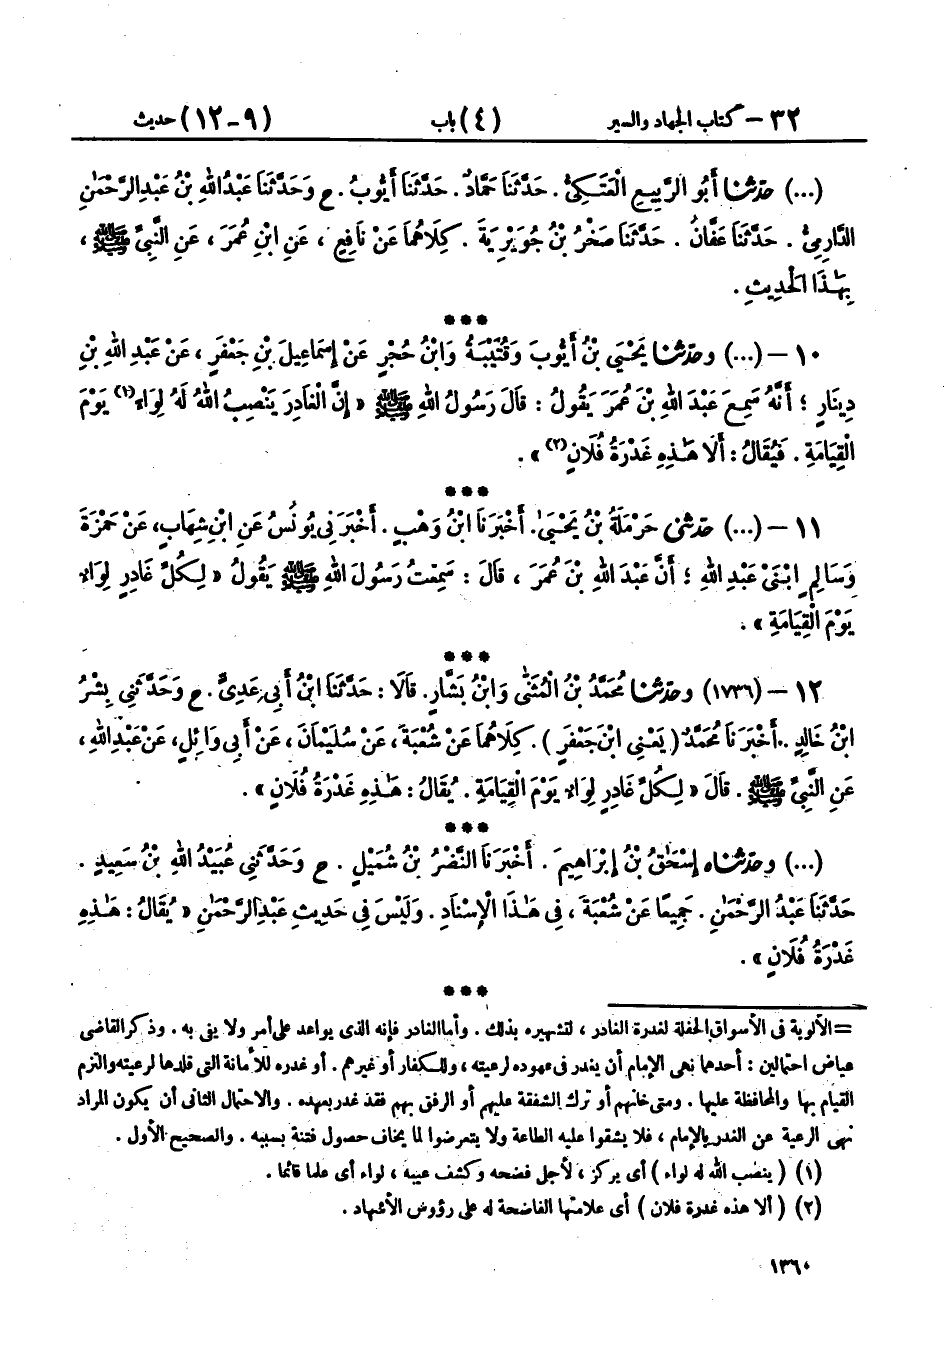 ٣٢ – كتاب الجهاد والسير (٤) باب (٩-١٢) حديث
(...) حدثنا أَبُو الرَّبِيعِ الْعَتَكِيُّ . حَدَّثَنَا حَمَّادٌ . حَدَّثَنَا أَيُّوبُ . ح وَحَدَّثَنَا عَبْدُ اللهِ بْنُ عَبْدِ الرَّحْمَٰنِ
الدَّارِمِيُّ . حَدَّثَنَا عَفَّانُ . حَدَّثَنَا صَخْرُ بْنُ جُوَيْرِيَةَ . كِلَاهُمَا عَنْ نَافِعٍ ، عَنِ ابْنِ عُمَرَ ، عَنِ النَّبِيِّ ﷺ ،
بِهَٰذَا الْحَدِيثِ .
***
١٠ – (...) وحدثنا يَحْيَى بْنُ أَيُّوبَ وَقُتَيْبَةُ وَابْنُ حُجْرٍ عَنْ إِسْمَاعِيلَ بْنِ جَعْفَرٍ ، عَنْ عَبْدِ اللهِ بْنِ
دِينَارٍ ؛ أَنَّهُ سَمِعَ عَبْدَ اللهِ بْنَ عُمَرَ يَقُولُ : قَالَ رَسُولُ اللهِ ﷺ « إِنَّ الْغَادِرَ يَنْصِبُ اللهُ لَهُ لِوَاءً(١) يَوْمَ
الْقِيَامَةِ . فَيُقَالُ : أَلَا هَٰذِهِ غَدْرَةُ فُلَانٍ(٢) » .
***
١١ – (...) حدثني حَرْمَلَةُ بْنُ يَحْيَىٰ . أَخْبَرَنَا ابْنُ وَهْبٍ . أَخْبَرَنِي يُونُسُ عَنِ ابْنِ شِهَابٍ، عَنْ حَمْزَةَ
وَسَالِمٍ ابْنَيْ عَبْدِ اللهِ ؛ أَنَّ عَبْدَ اللهِ بْنَ عُمَرَ ، قَالَ : سَمِعْتُ رَسُولَ اللهِ ﷺ يَقُولُ « لِكُلِّ غَادِرٍ لِوَاءٌ
يَوْمَ الْقِيَامَةِ » .
***
١٢ – (١٧٣٦) وحدثنا مُحَمَّدُ بْنُ الْمُثَنَّىٰ وَابْنُ بَشَّارٍ . قَالَا : حَدَّثَنَا ابْنُ أَبِي عَدِيٍّ . ح وَحَدَّثَنِي بِشْرُ
ابْنُ خَالِدٍ . أَخْبَرَنَا مُحَمَّدٌ ( يَعْنِي ابْنَ جَعْفَرٍ ) . كِلَاهُمَا عَنْ شُعْبَةَ ، عَنْ سُلَيْمَانَ ، عَنْ أَبِي وَائِلٍ، عَنْ عَبْدِ اللهِ ،
عَنِ النَّبِيِّ ﷺ . قَالَ « لِكُلِّ غَادِرٍ لِوَاءٌ يَوْمَ الْقِيَامَةِ . يُقَالُ : هَٰذِهِ غَدْرَةُ فُلَانٍ » .
***
(...) وحدثناه إِسْحَٰقُ بْنُ إِبْرَاهِيمَ . أَخْبَرَنَا النَّضْرُ بْنُ شُمَيْلٍ . ح وَحَدَّثَنِي عُبَيْدُ اللهِ بْنُ سَعِيدٍ .
حَدَّثَنَا عَبْدُ الرَّحْمَٰنِ . جَمِيعًا عَنْ شُعْبَةَ ، فِي هَٰذَا الْإِسْنَادِ . وَلَيْسَ فِي حَدِيثِ عَبْدِ الرَّحْمَٰنِ « يُقَالُ : هَٰذِهِ
غَدْرَةُ فُلَانٍ » .
***
= الألوية فى الأسواق الحفلة لغدرة الغادر ، لتشهيره بذلك . وأما الغادر فإنه الذى يواعد على أمر ولا يفى به . وذكر القاضى
عياض احتمالين : أحدهما نهى الإمام أن يغدر فى عهوده لرعيته ، وللكفار أو غيرهم . أو غدره للأمانة التى قلدها لرعيته والتزم
القيام بها والمحافظة عليها . ومتى خانهم أو ترك الشفقة عليهم أو الرفق بهم فقد غدر بعهده . والاحتمال الثانى أن يكون المراد
نهى الرعية عن الغدر بالإمام ، فلا يشقوا عليه الطاعة ولا يتعرضوا لما يخاف حصول فتنة بسببه . والصحيح الأول .
(١) ( ينصب الله له لواء ) أى يركز ، لأجل فضحه وكشف عيبه ، لواء أى علما قائما .
(٢) ( ألا هذه غدرة فلان ) أى علامتها الفاضحة له على رؤوس الأشهاد .
١٣٦٠